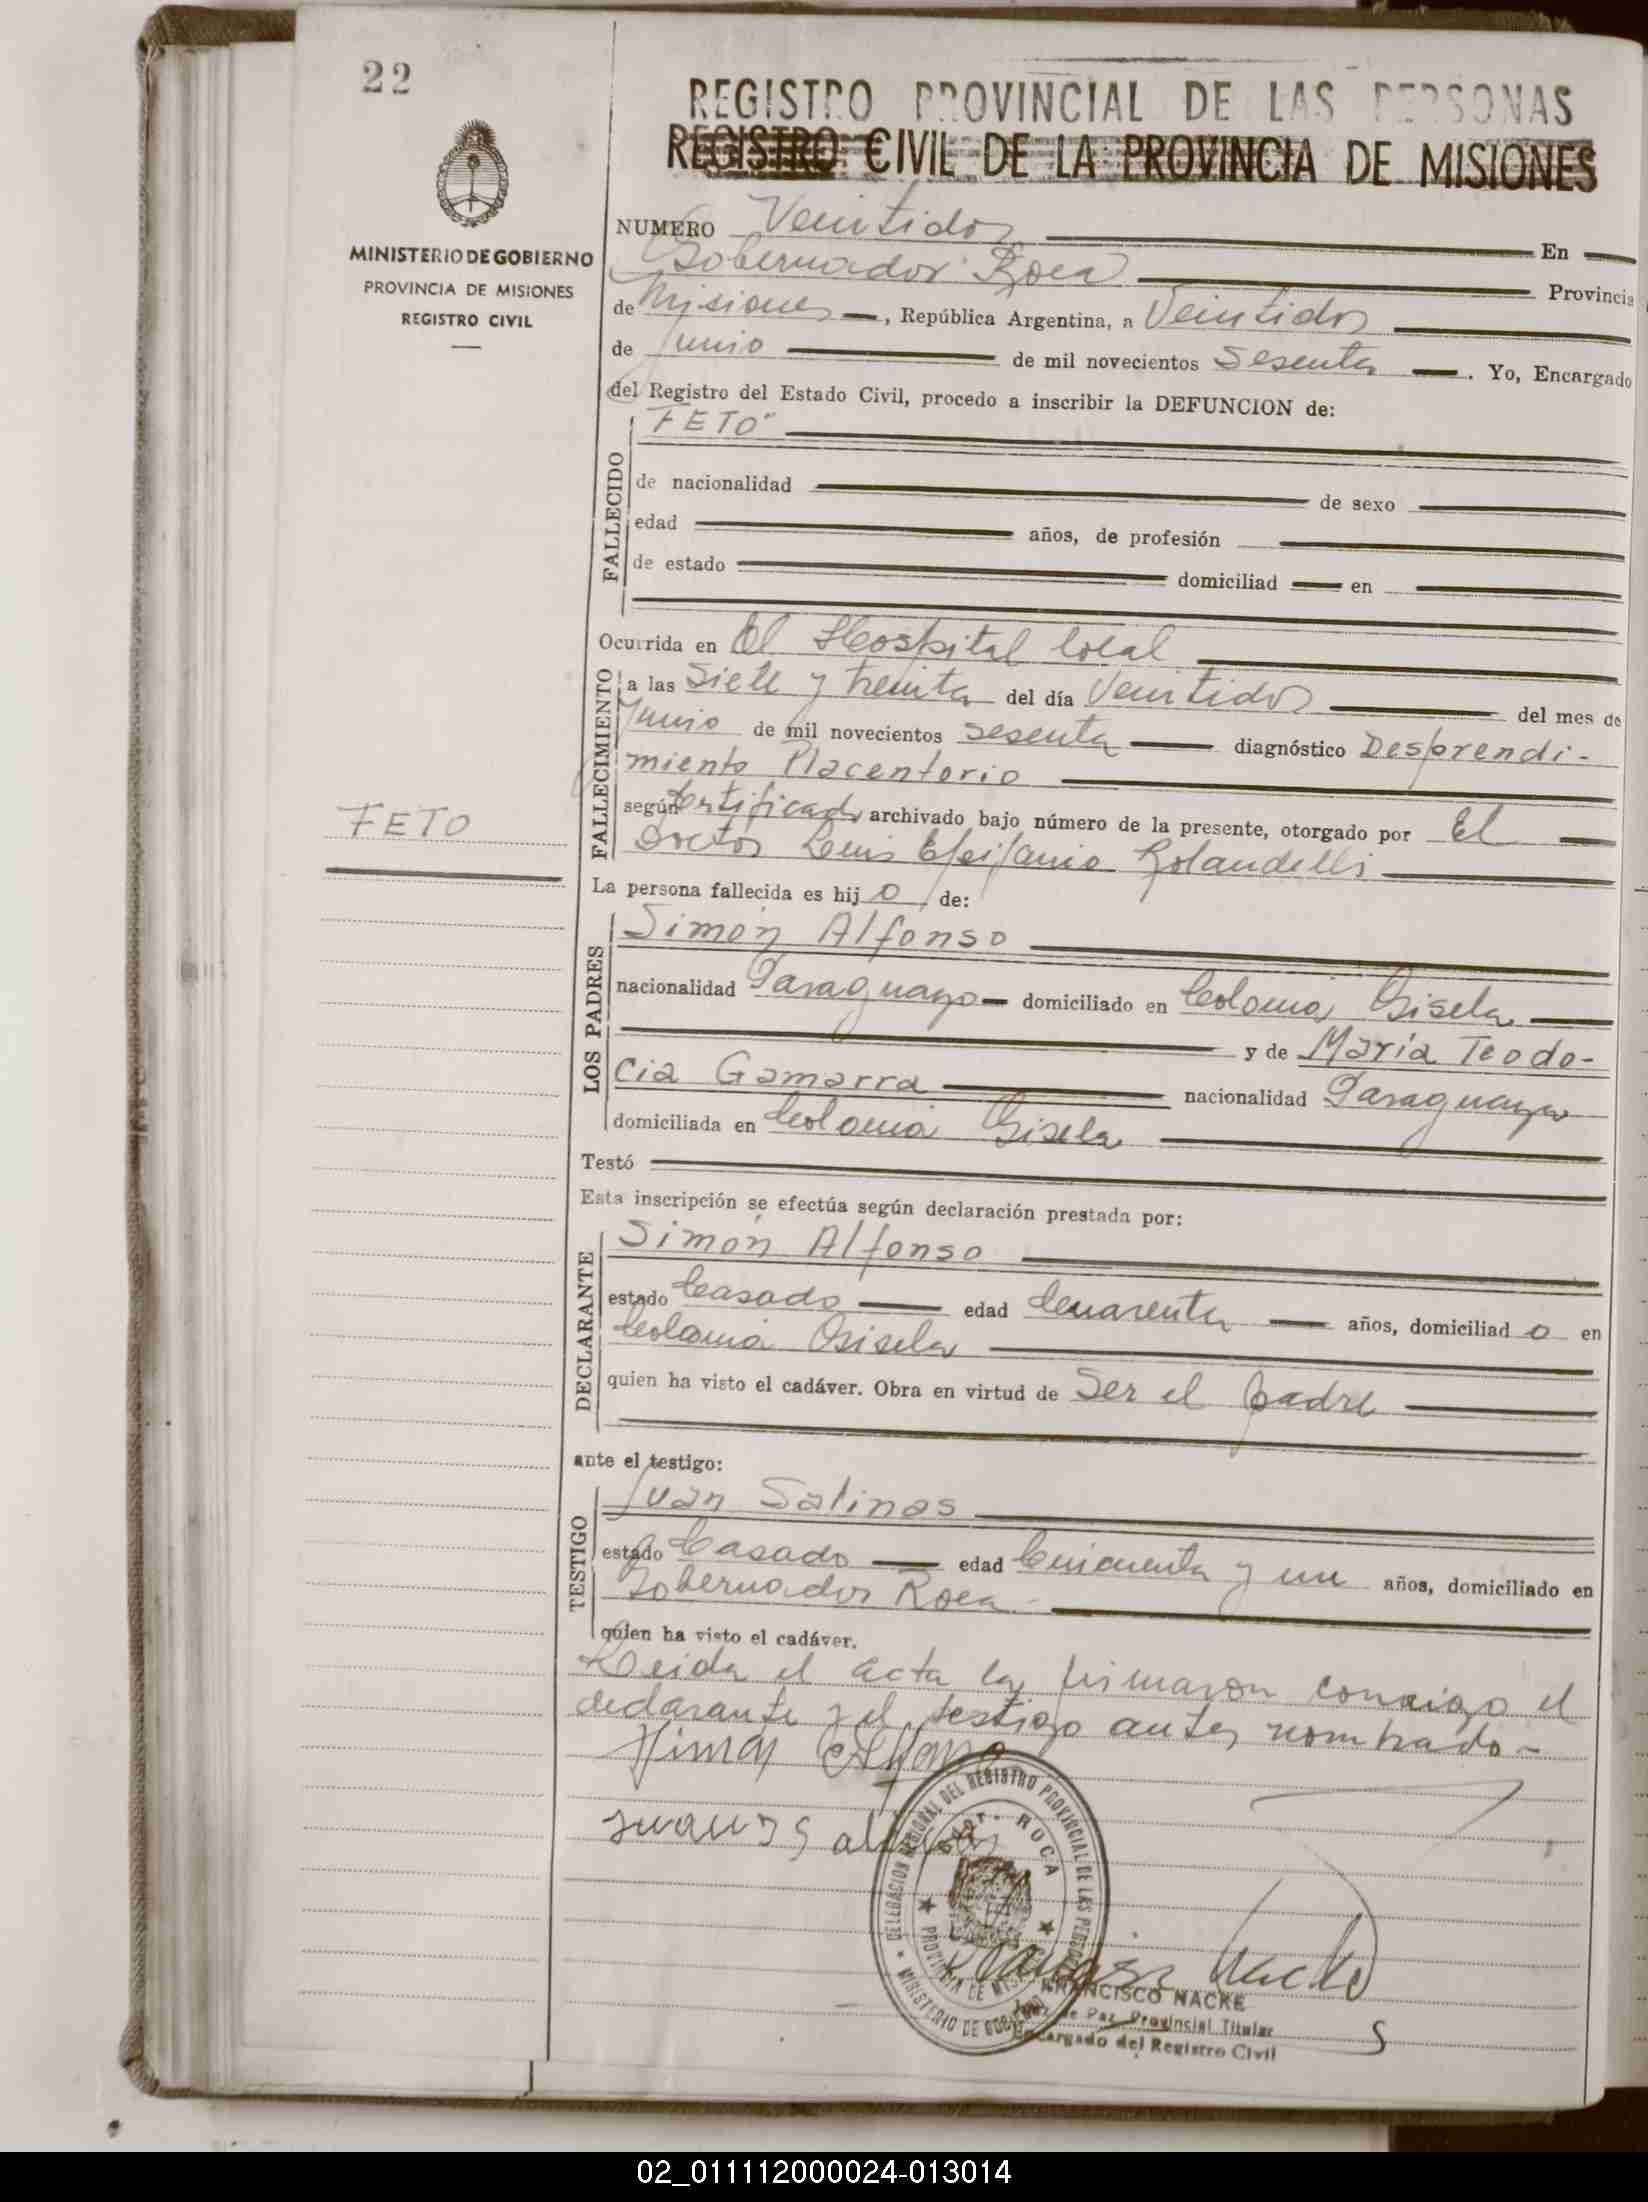 22
REGISTRO PROVINCIAL DE LAS PERSONAS
REGISTRO CIVIL DE LA PROVINCIA DE MISIONES
MINISTERIO DE GOBIERNO
PROVINCIA DE MISIONES
REGISTRO CIVIL
NUMERO Veintidos En
Gobernador Roca Provincia
de Misiones, República Argentina, a Veintidos
de Junio de mil novecientos Sesenta. Yo, Encargado
del Registro del Estado Civil, procedo a inscribir la DEFUNCION de:
FALLECIDO
FETO"
de nacionalidad de sexo
edad años, de profesión
de estado domiciliad en
Ocurrida en El Hospital local
FALLECIMIENTO
a las Siete y treinta del día Veintidos del mes de
Junio de mil novecientos sesenta diagnóstico Desprendi-
miento Placentorio
según Certificado archivado bajo número de la presente, otorgado por El
Doctor Luis Epifanio Rolandelli
FETO
La persona fallecida es hij o de:
LOS PADRES
Simón Alfonso
nacionalidad Paraguayo domiciliado en Colonia Gisela
y de María Teodo-
cia Gamarra nacionalidad Paraguaya
domiciliada en Colonia Gisela
Testó
Esta inscripción se efectúa según declaración prestada por:
DECLARANTE
Simón Alfonso
estado Casado edad Cuarenta años, domiciliad o en
Colonia Gisela
quien ha visto el cadáver. Obra en virtud de Ser el padre
ante el testigo:
TESTIGO
Juan Salinas
estado Casado edad Cincuenta y un años, domiciliado en
Gobernador Roca
quien ha visto el cadáver.
Leida el acta la firmaron conmigo el
declarante y el testigo antes nombrado-
Simon Alfonso
Juan Salinas
DELEGACION REGIONAL DEL REGISTRO PROVINCIAL DE LAS PERSONAS
Gdor. ROCA
PROVINCIA DE MISIONES
MINISTERIO DE GOBIERNO
Francisco Nacke
FRANCISCO NACKE
Juez de Paz Provincial Titular
Encargado del Registro Civil
02_011112000024-013014